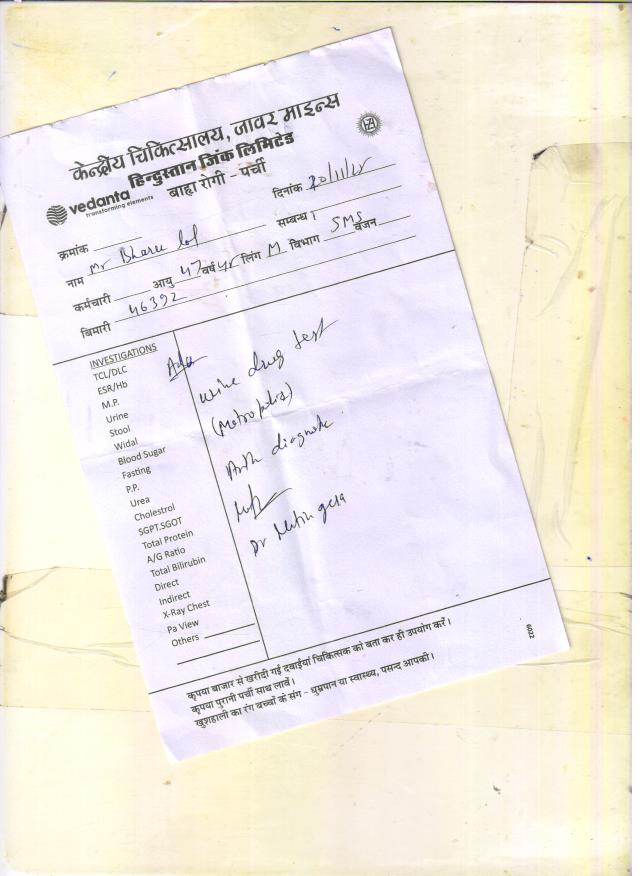 केन्द्रीय चिकित्सालय, जावर माइन्स
हिन्दुस्तान जिंक लिमिटेड
vedanta
transforming elements
बाह्य रोगी - पर्ची
दिनांक 20/11/25
क्रमांक
सम्बन्ध।
नाम Mr Bharu lal
कर्मचारी आयु 47 वर्ष yr लिंग M विभाग SMS वजन
बिमारी 46392
INVESTIGATIONS
TCL/DLC
ESR/Hb
M.P.
Urine
Stool
Widal
Blood Sugar
Fasting
P.P.
Urea
Cholestrol
SGPT.SGOT
Total Protein
A/G Ratio
Total Bilirubin
Direct
Indirect
X-Ray Chest
Pa View
Others
Adv
urine drug test
(Metropolis)
Arth diagnostic
Dr Nitin
कृपया बाजार से खरीदी गई दवाईयां चिकित्सक को बता कर ही उपयोग करें।
कृपया पुरानी पर्ची साथ लावें।
खुशहाली का रंग बच्चों के संग - धुम्रपान या स्वास्थ्य, पसन्द आपकी।